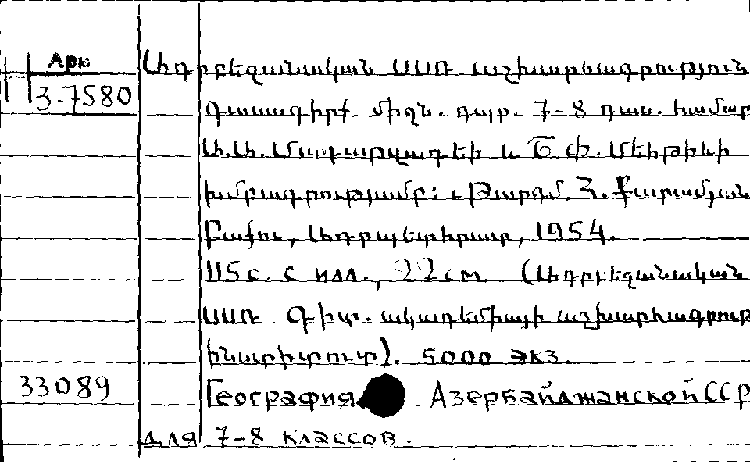 Арм
3-7580
Ադրբեջանական ՍՍՌ աշխարհագրություն
Դասագիրք միջն. դպր. 7-8 դաս. համար
Ա.Ա. և Ե.Փ.
խմբագրությամբ: Թարգմ. Հ. Քարամյան
Բաքու, Ադրպետհրատ, 1954.
115 с. с илл., 22 см. (Ադրբեջանական
ՍՍՌ Գիտ. ակադեմիայի աշխարհագրութ
ինստիտուտ). 5000 экз.
33089
География Азербайджанской ССР
для 7-8 классов.